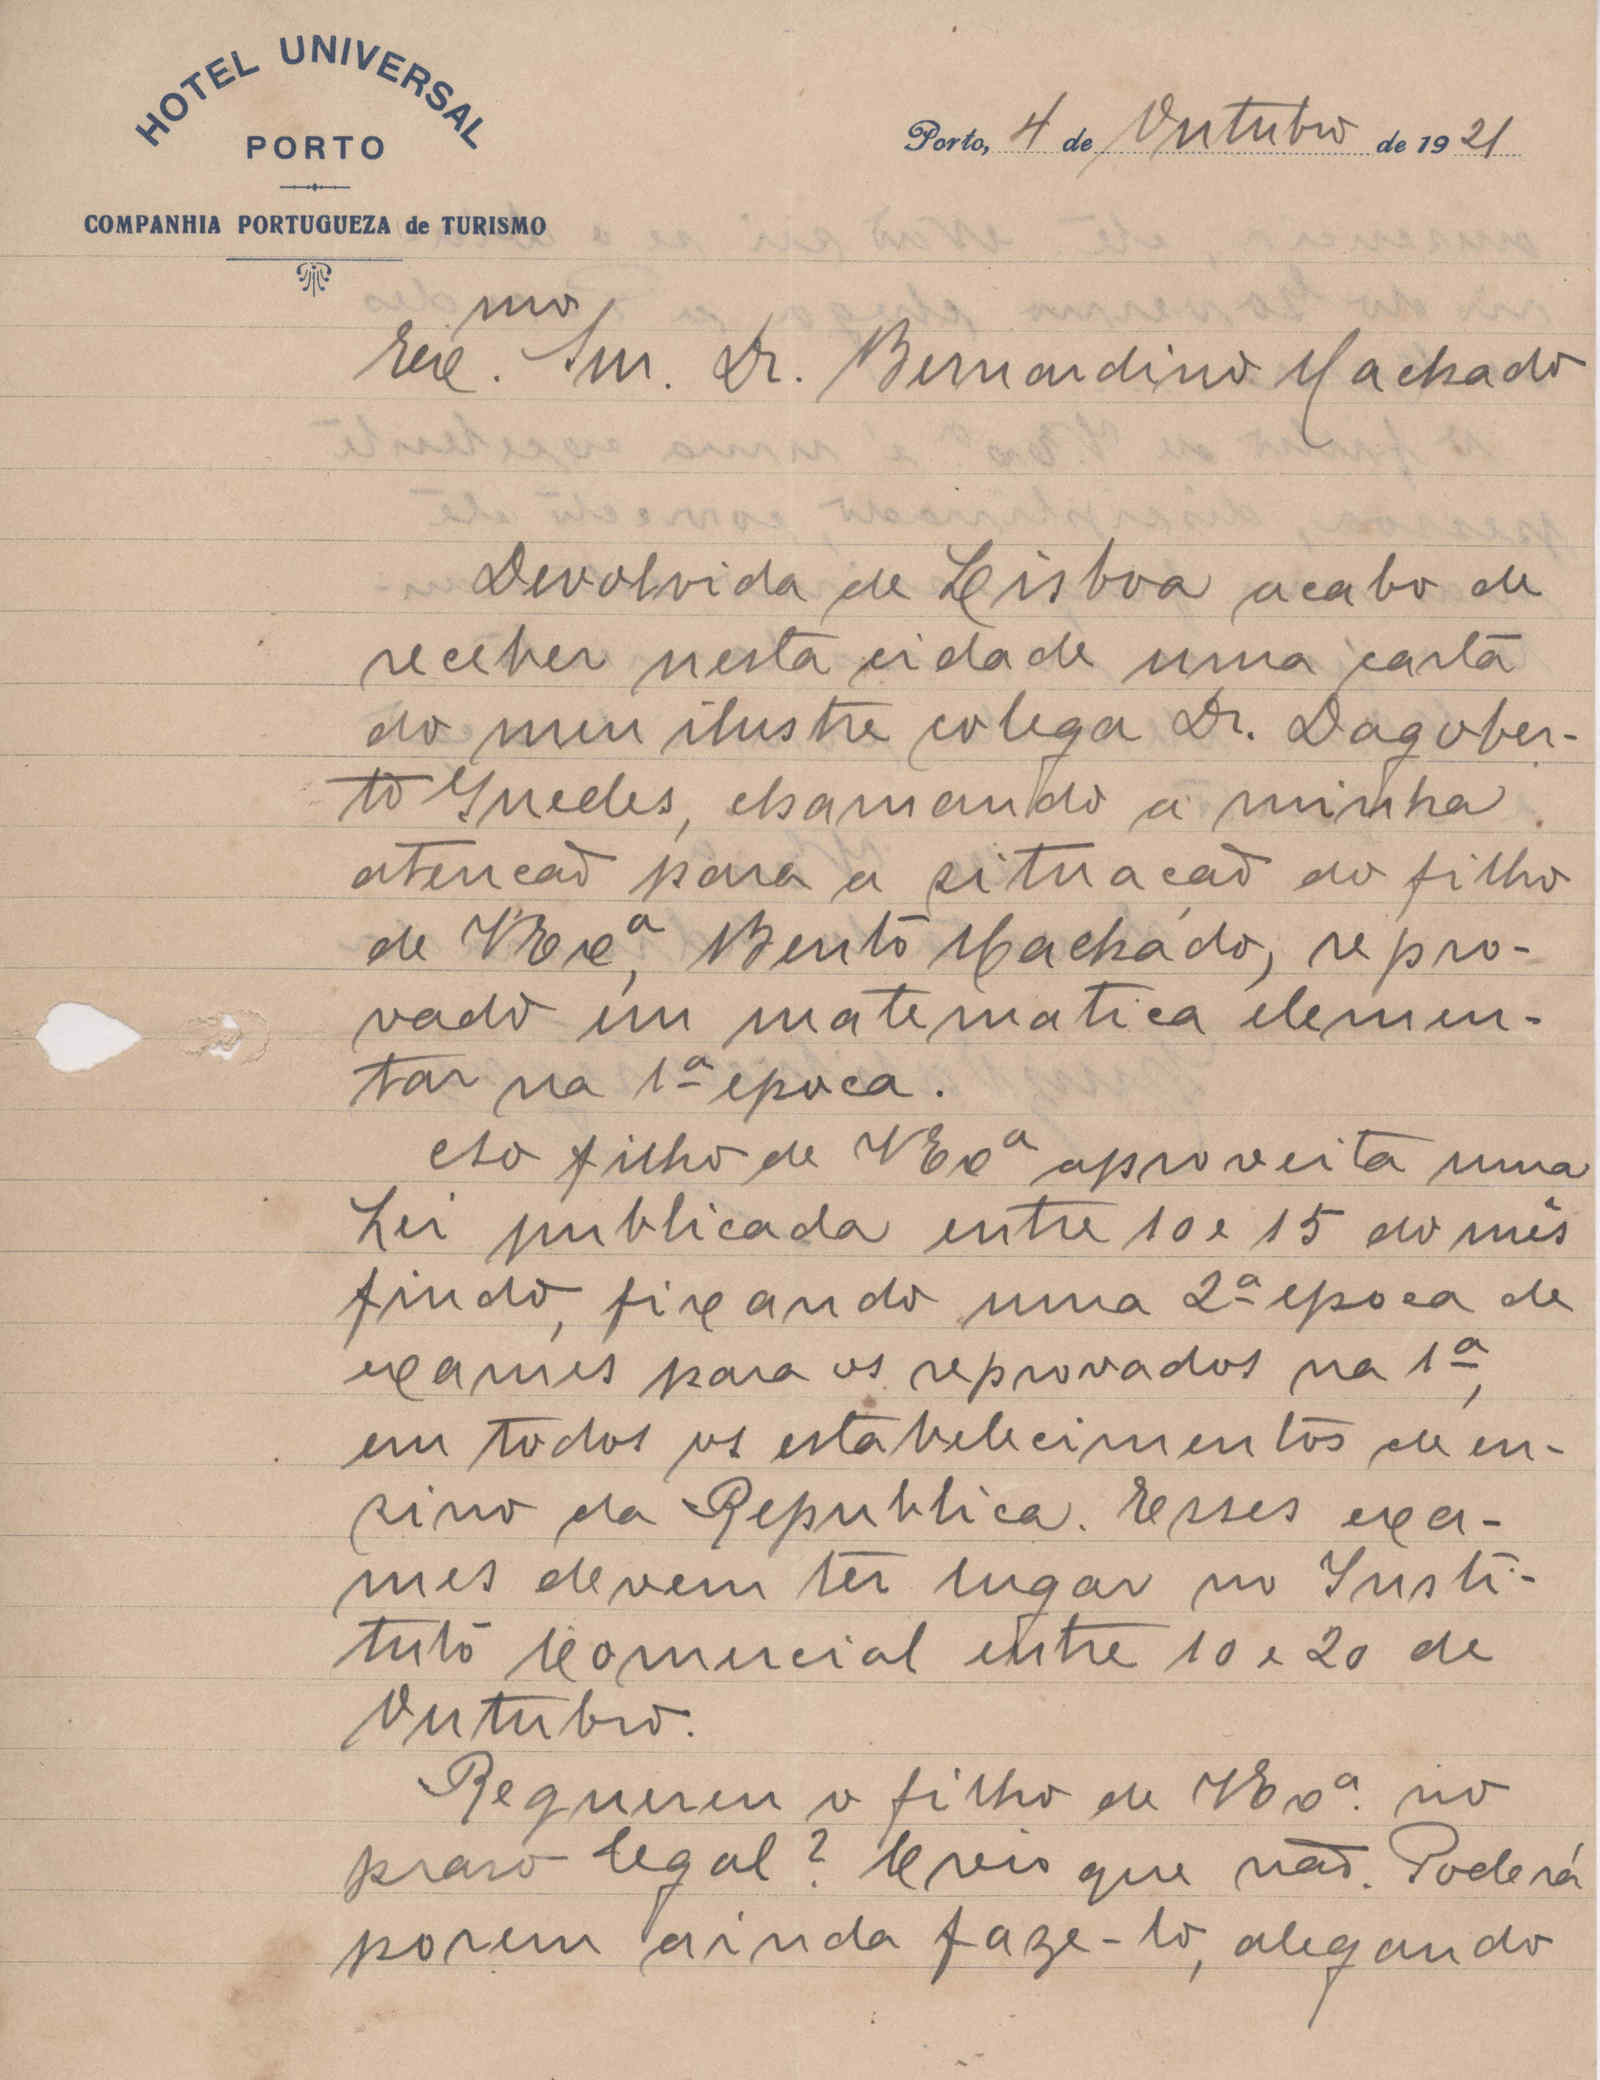 HOTEL UNIVERSAL
PORTO
COMPANHIA PORTUGUEZA de TURISMO
Porto, 4 de Outubro de 1921
Exc.mo Snr. Dr. Bernardino Machado
Devolvida de Lisboa acabo de
receber nesta cidade uma carta
do meu ilustre colega Dr. Dagober-
to Guedes, chamando a minha
atencaõ para a situaçaõ do filho
de VExª, Bento Machado, repro-
vado em matematica elemen-
tar na 1ª epoca.
Ao filho de VExª aproveita uma
Lei publicada entre 10 e 15 do mês
findo, fixando uma 2ª epoca de
exames para os reprovados na 1ª,
em todos os estabelecimentos de en-
sino da Republica. Esses exa-
mes devem ter lugar no Insti-
tuto Comercial entre 10 e 20 de
Outubro.
Requereu o filho de VExª. no
praso legal? Creio que naõ. Poderá
porem ainda faze-lo, alegando